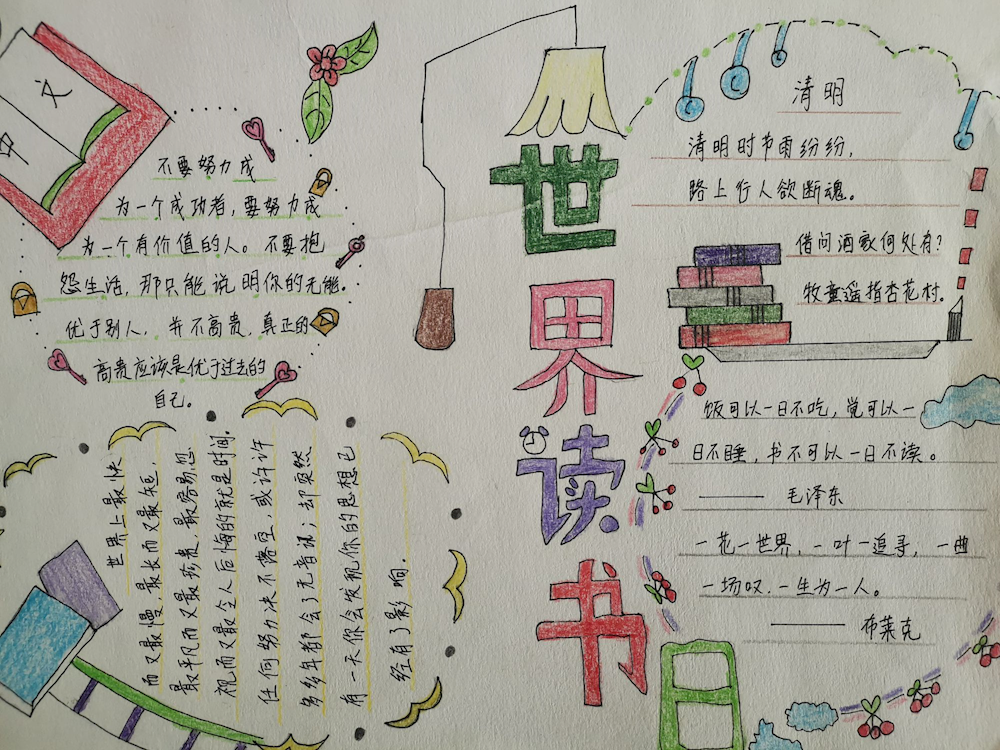 文
不要努力成
为一个成功者，要努力成
为一个有价值的人。不要抱
怨生活，那只能说明你的无能。
优于别人，并不高贵，真正的
高贵应该是优于过去的
自己。
世界上最快
而又最慢，最长而又最短，
最平凡而又最珍贵，最容易忽
视而又最令人后悔的就是时间.
任何努力决不落空，或许许
多多年都会了无音讯；却突然
有一天你会发现你的思想已
经有了影响.
世界读书日
清明
清明时节雨纷纷，
路上行人欲断魂。
借问酒家何处有？
牧童遥指杏花村.
饭可以一日不吃，觉可以一
日不睡，书不可以一日不读。
——毛泽东
一花一世界，一叶一追寻，一曲
一场叹，一生为一人。
——布莱克